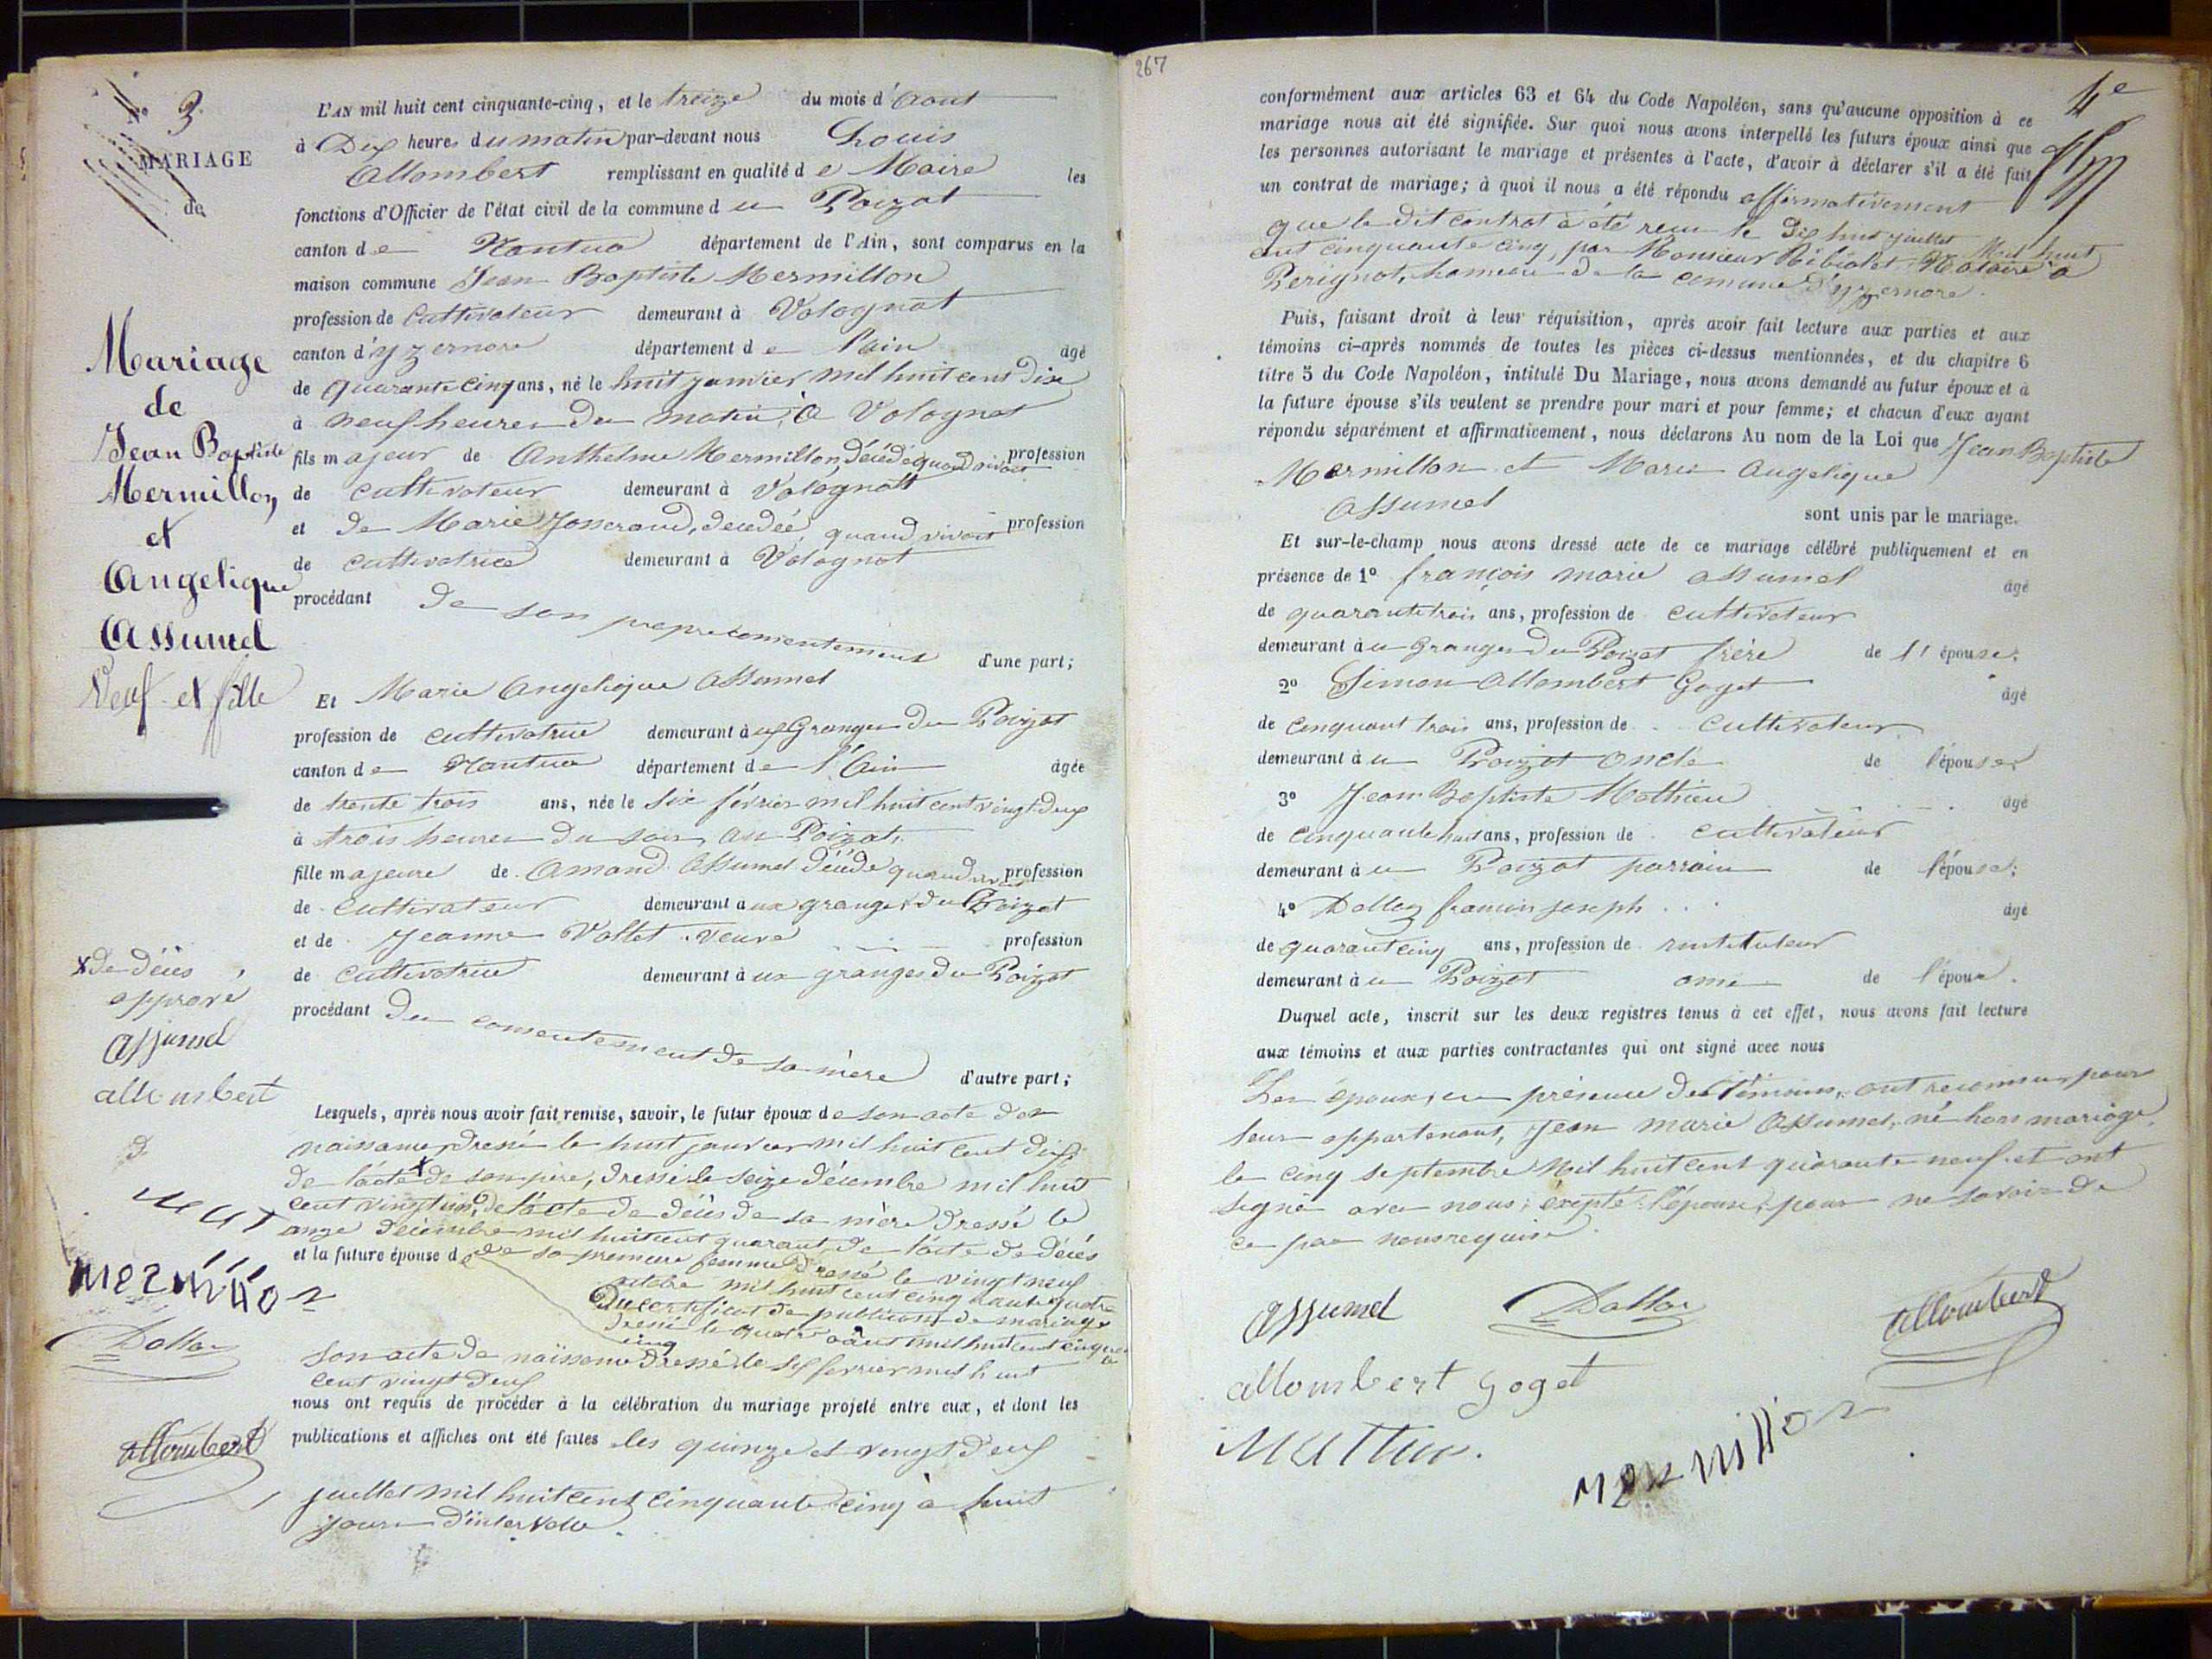 No 3.
MARIAGE
de
Mariage
de
Jean Baptiste
Mermillon
et
Angelique
Assumel
Veuf et fille
L'AN mil huit cent cinquante-cinq, et le treize du mois d'Aout
à Dix heures du matin par-devant nous Louis
Allombert remplissant en qualité de Maire les
fonctions d'Officier de l'état civil de la commune du Poizat
canton de Nantua département de l'Ain, sont comparus en la
maison commune Jean Baptiste Mermillon
profession de Cultivateur demeurant à Volognat
canton d'yzernore département de l'ain âgé
de quarante cinq ans, né le huit janvier mil huit cent dix
à neuf heures du matin, à Volognat
fils majeur de Anthelme Mermillon, décédé quand vivait profession
de cultivateur demeurant à Volognat
et de Marie Josserand, decedée, quand vivait profession
de cultivatrice demeurant à Volognat
procédant de son propre consentement d'une part;
Et Marie Angelique Assumel
profession de cultivatrice demeurant aux Granges du Poizat
canton de Nantua département de l'Ain âgée
de trente trois ans, née le six février mil huit cent vingt deux
à trois heures du soir, au Poizat,
fille majeure de Amand Assumel décédé quand vivait profession
de cultivateur demeurant aux granges du Poizat
et de Jeanne Vallet veuve profession
de cultivatrice demeurant aux granges du Poizat
procédant du consentement de sa mère d'autre part;
Lesquels, après nous avoir fait remise, savoir, le futur époux de son acte de
naissance dressé le huit janvier mil huit cent dix,
de l'acte x de son père, dressé le seize décembre mil huit
cent vingt un, de l'acte de décès de sa mère dressé le
onze décembre mil huit cent quarant de l'acte de décès
et la future épouse de de sa premiere femme dressé le vingt neuf
octobre mil huit cent cinquante quatre
Du certificat de publication de mariage
dressé le quatre aout mil huit cent cinquante
cinq
son acte de naissance dressé le six fevrier mil huit
cent vingt deux
nous ont requis de procéder à la célébration du mariage projeté entre eux, et dont les
publications et affiches ont été faites les quinze et vingt deux
juillet mil huit cent cinquante cinq à huit
jours d'intervalle.
x de décès
apprové
assumel
allombert
mermillon
Dalloz
allombert
267
4e
conformément aux articles 63 et 64 du Code Napoléon, sans qu'aucune opposition à ce
mariage nous ait été signifiée. Sur quoi nous avons interpellé les futurs époux ainsi que
les personnes autorisant le mariage et présentes à l'acte, d'avoir à déclarer s'il a été fait
un contrat de mariage; à quoi il nous a été répondu affirmativement
que le dit contrat à été recu le dix huit juillet Mil huit
cent cinquante cinq, par Monsieur Notaire à
Perignat, hameau de la comune d'yzernore.
Puis, faisant droit à leur réquisition, après avoir fait lecture aux parties et aux
témoins ci-après nommés de toutes les pièces ci-dessus mentionnées, et du chapitre 6
titre 5 du Code Napoléon, intitulé Du Mariage, nous avons demandé au futur époux et à
la future épouse s'ils veulent se prendre pour mari et pour femme; et chacun d'eux ayant
répondu séparément et affirmativement, nous déclarons Au nom de la Loi que Jean Baptiste
Mermillon et Marie Angelique
Assumel sont unis par le mariage.
Et sur-le-champ nous avons dressé acte de ce mariage célébré publiquement et en
présence de 1º françois marie assumel âgé
de quarante trois ans, profession de cultivateur
demeurant au granges du Poizat frère de l'épouse;
2º Simon Allombert Goget âgé
de cinquant trois ans, profession de cultivateur
demeurant au Poizat oncle de l'épouse
3º Jean Baptiste Mathieu âgé
de cinquante huit ans, profession de cultivateur
demeurant au Poizat parrain de l'épouse;
4º Dalloz francois joseph âgé
de quarant cinq ans, profession de instituteur
demeurant au Poizat ami de l'époux.
Duquel acte, inscrit sur les deux registres tenus à cet effet, nous avons fait lecture
aux témoins et aux parties contractantes qui ont signé avec nous
Les époux, en présence des témoins, ont reconnu pour
leur appartenant, Jean marie Assumel, né hors mariage,
le cinq septembre Mil huit cent quarante neuf et ont
signé avec nous, éxepté l'épouse, pour ne savoir de
ce par nous requise.
assumel Dalloz allombert
allombert goget
mermillon